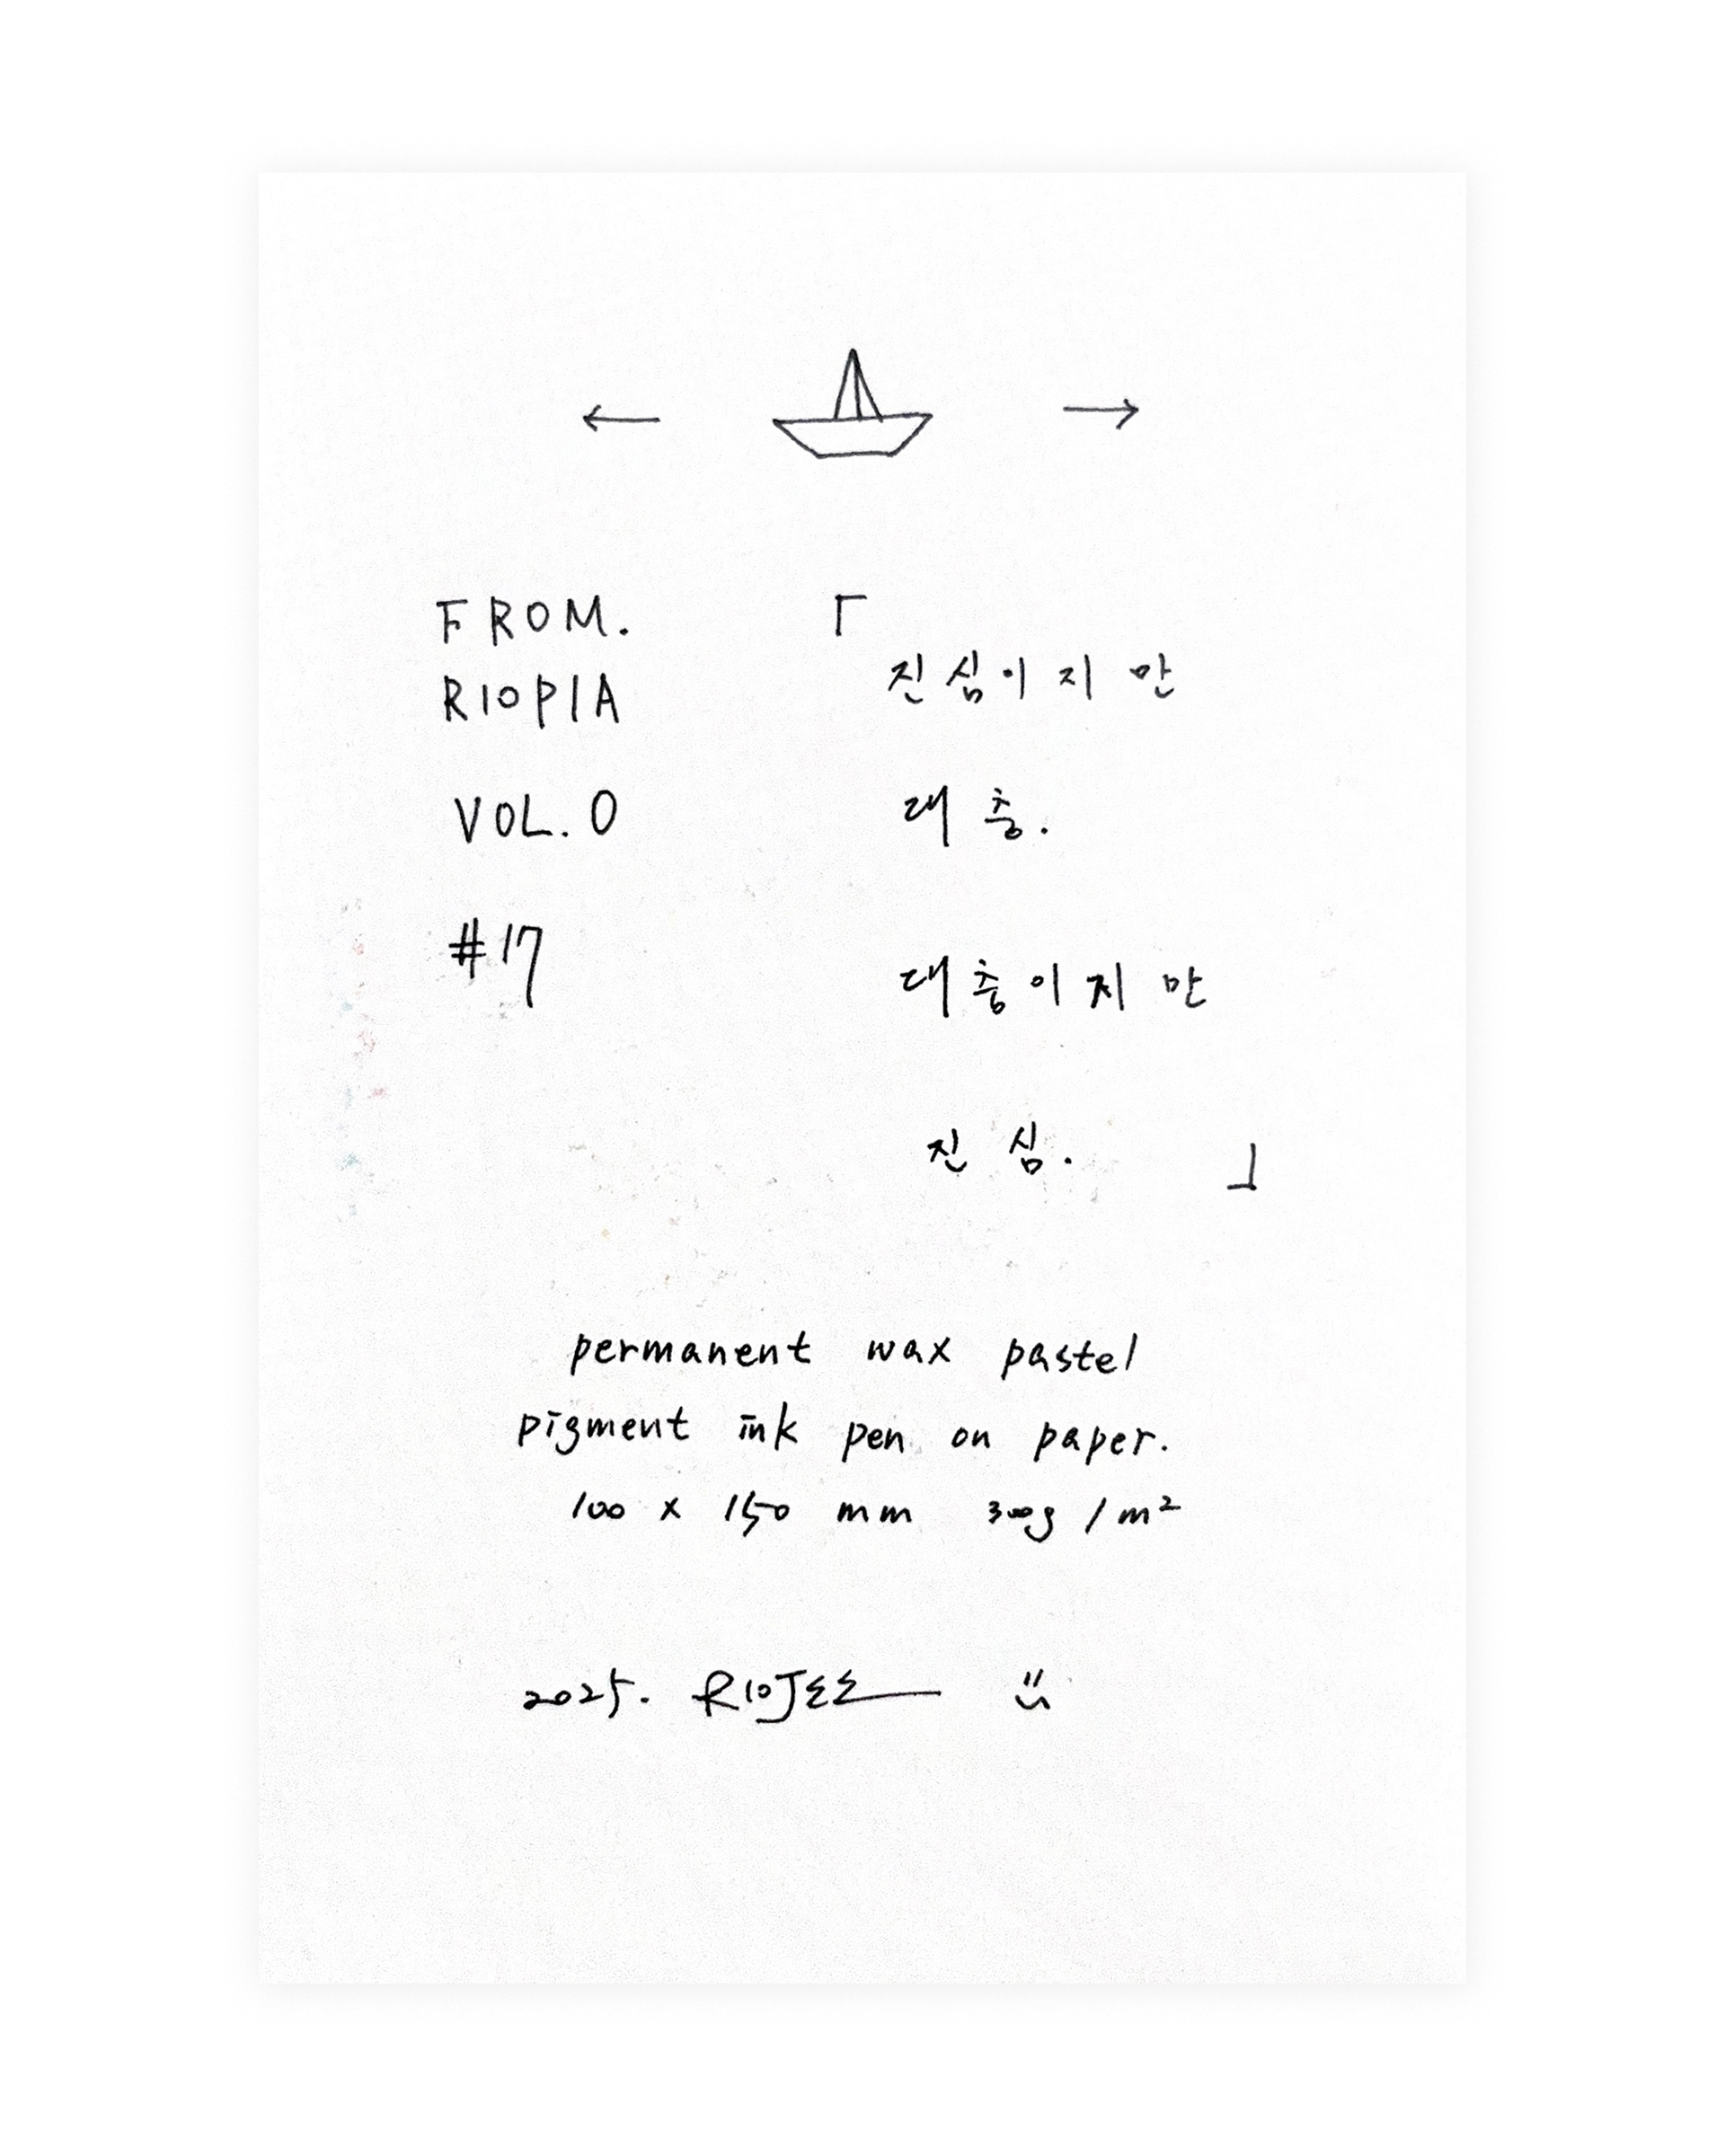 FROM.
RIOPIA
VOL. 0
#17
「
진심이지만
대충.
대충이지만
진심. 」
permanent wax pastel
pigment ink pen on paper.
100 x 150 mm 300g / m²
2025. RIOJEE